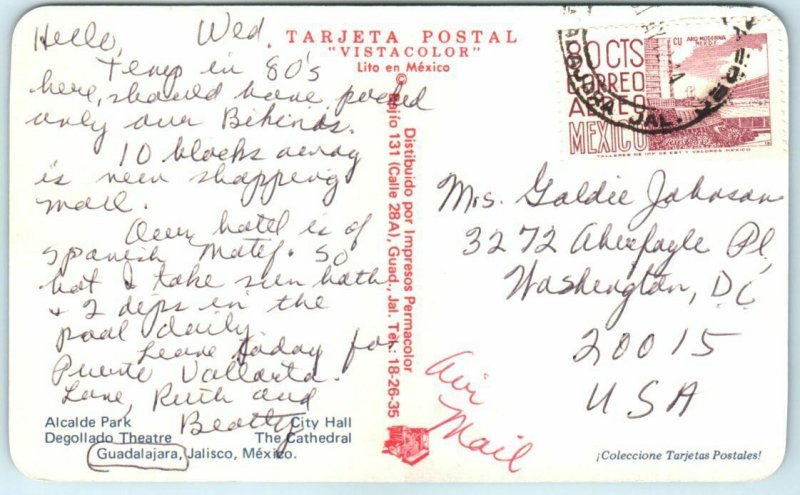 Hello, Wed.
Temp in 80's
here, should have packed
only our Bikinis.
10 blocks away
is new shopping
mall.
Our hotel is of
Spanish Motif. So
hot I take sun bath
& 2 dips in the
pool daily.
Leave today for
Puerto Vallarta.
Love, Ruth and
Beatty
Alcalde Park City Hall
Degollado Theatre The Cathedral
Guadalajara, Jalisco, México.
TARJETA POSTAL
"VISTACOLOR"
Lito en México
©
Distribuido por Impresos Permacolor
Bajío 131 (Calle 28A), Guad., Jal. Tel.: 18-26-35
80 CTS
CORREO
AEREO
MEXICO
CU ARQ MODERNA
MEX D F
TALLERES DE IMP DE EST Y VALORES MEXICO
JAL.
Mrs. Goldie Johnson
3272 Aberfoyle Pl
Washington, DC
20015
USA
Air
Mail
¡Coleccione Tarjetas Postales!